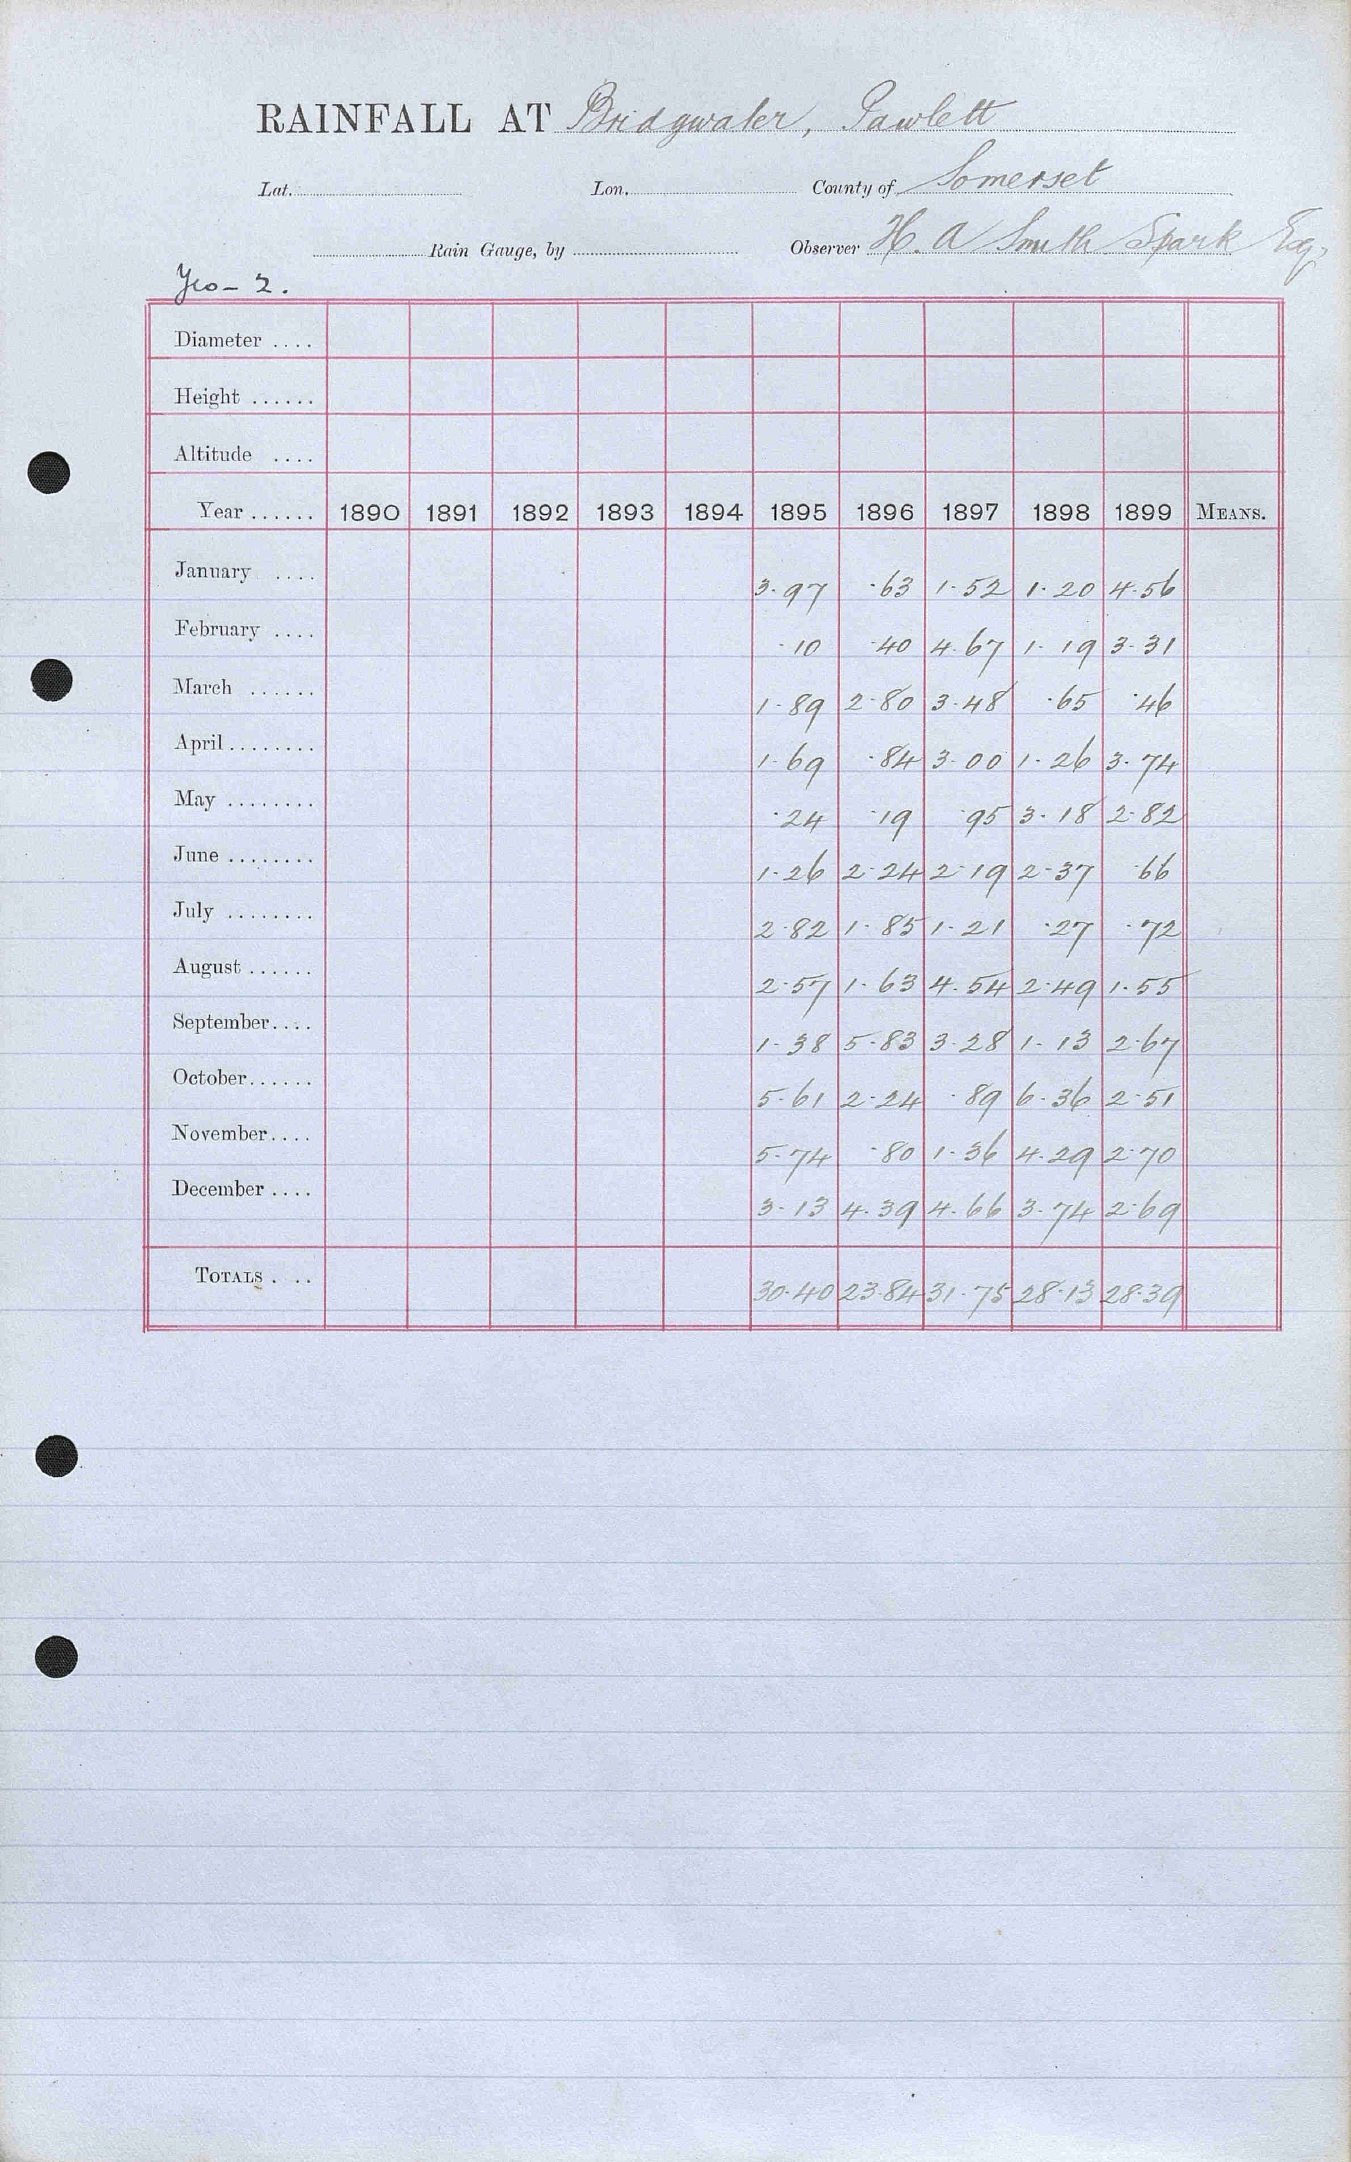 RAINFALL AT Bridgwater, Pawlett
Lat. Lon. County of Somerset
Rain Gauge, by Observer H. A Smith Spark Esq.
Yeo - 2.
Diameter ....
Height ......
Altitude ....
Year ...... 1890 1891 1892 1893 1894 1895 1896 1897 1898 1899 MEANS.
January .... 3.97 .63 1.52 1.20 4.56
February .... .10 .40 4.67 1.19 3.31
March ...... 1.89 2.80 3.48 .65 .46
April ........ 1.69 .84 3.00 1.26 3.74
May ........ .24 .19 .95 3.18 2.82
June ........ 1.26 2.24 2.19 2.37 .66
July ........ 2.82 1.85 1.21 .27 .72
August ...... 2.57 1.63 4.54 2.49 1.55
September.... 1.38 5.83 3.28 1.13 2.67
October...... 5.61 2.24 .89 6.36 2.51
November.... 5.74 .80 1.36 4.29 2.70
December .... 3.13 4.39 4.66 3.74 2.69
TOTALS . .. 30.40 23.84 31.75 28.13 28.39